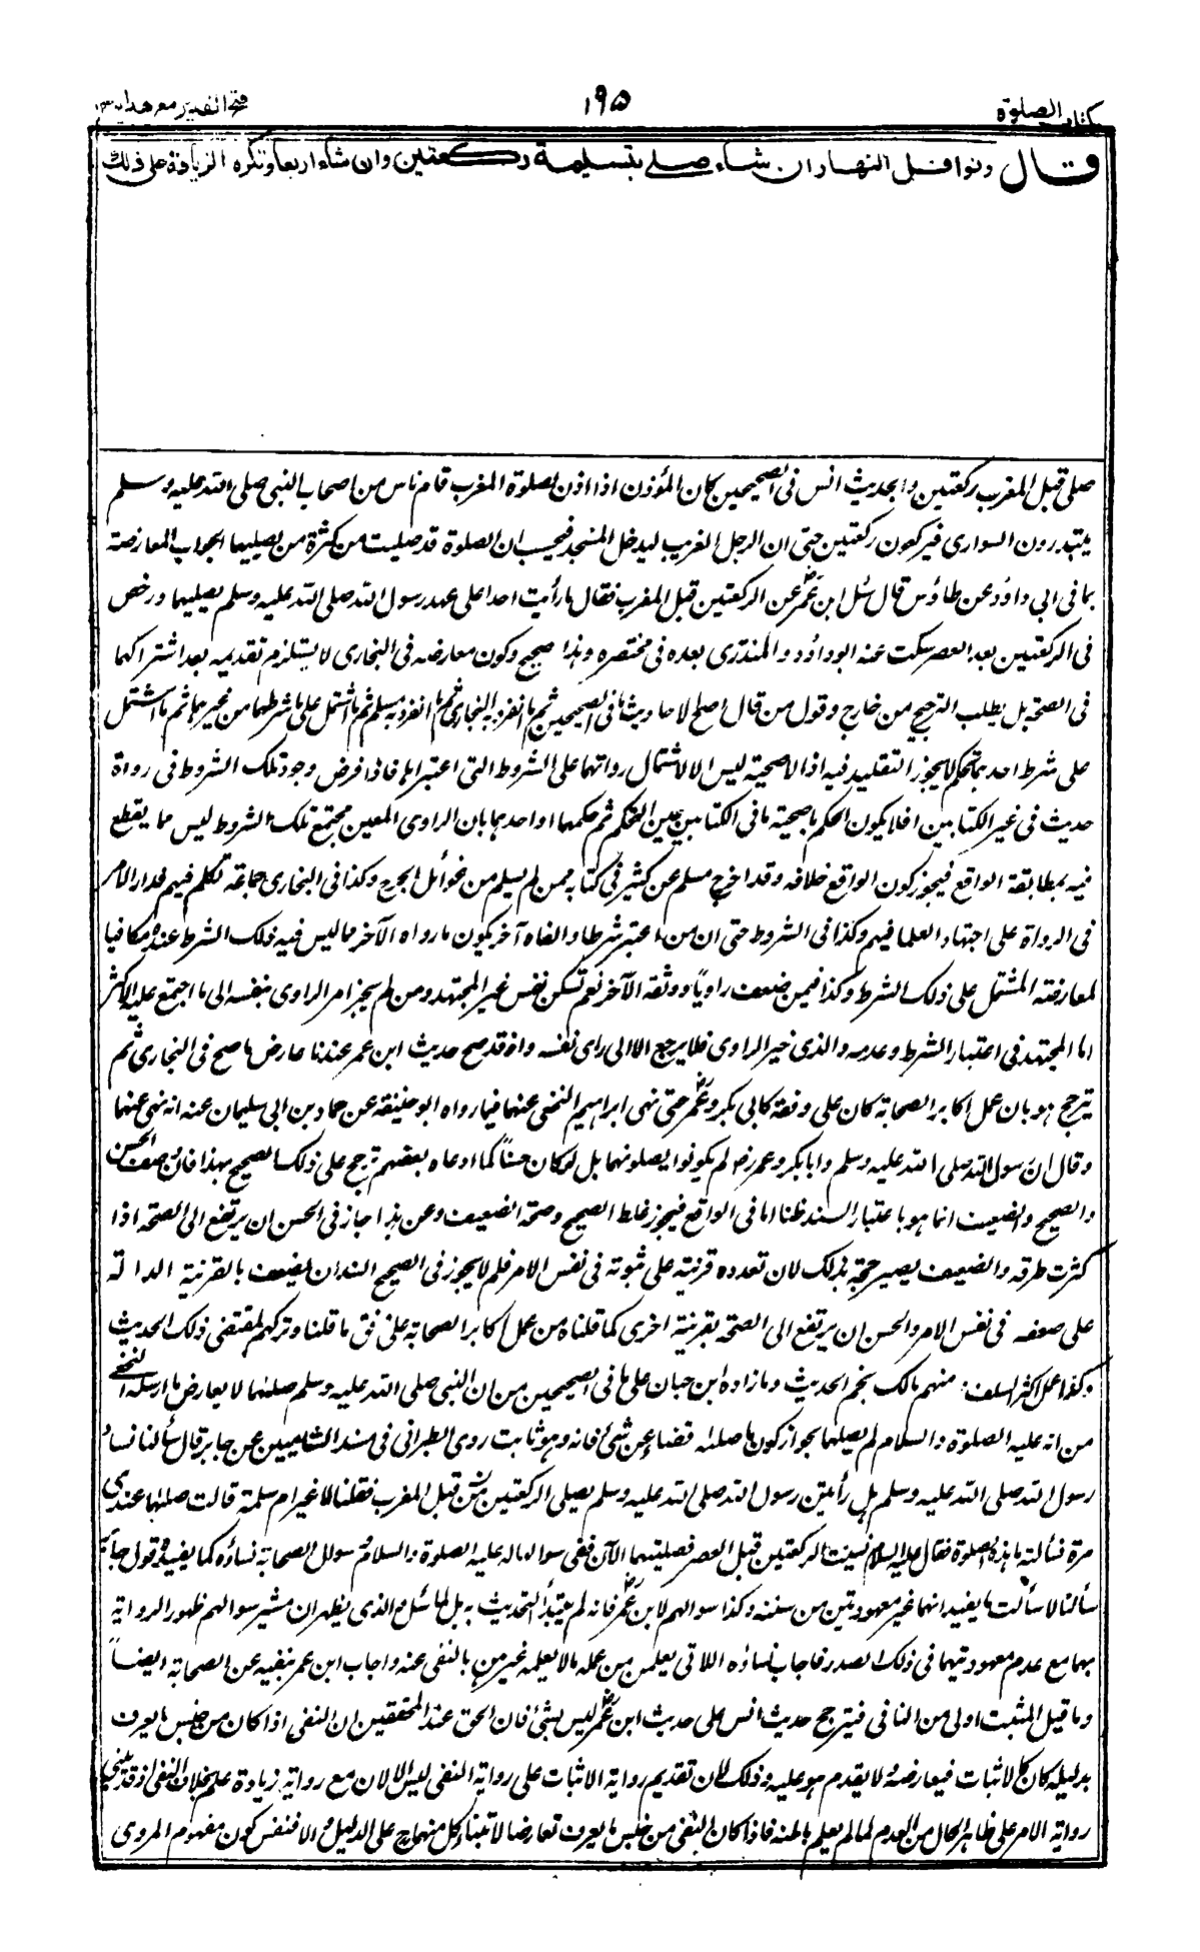 كتاب الصلوة
١٩٥
فتح القدير مع هدايه
قال ونوافل النهار ان شاء صلى بتسليمة ركعتين وان شاء اربعا وتكره الزيادة على ذلك
صلى قبل المغرب ركعتين والحديث انس فى الصحيحين كان المؤذن اذا اذن لصلوة المغرب قام ناس من اصحاب النبى صلى الله عليه وسلم
يبتدرون السوارى فيركعون ركعتين حتى ان الرجل الغريب ليدخل المسجد فيحسب ان الصلوة قد صليت من كثرة من يصليهما الجواب المعارضة
بما فى ابى داؤد عن طاؤس قال سئل ابن عمر عن الركعتين قبل المغرب فقال ما رأيت احدا على عهد رسول الله صلى الله عليه وسلم يصليهما ورخص
فى الركعتين بعد العصر سكت عنه ابو داؤد والمنذرى بعده فى مختصره وهذا صحيح وكون معارضه فى البخارى لا يستلزم تقديمه بعد اشتراكهما
فى الصحة بل يطلب الترجيح من خارج وقول من قال اصح الاحاديث ما فى الصحيحين ثم ما انفرد به البخارى ثم ما انفرد به مسلم ثم ما اشتمل على شرطهما من غيرهما ثم ما اشتمل
على شرط احدهما تحكم لا يجوز التقليد فيه اذ الاصحية ليس الا لاشتمال رواتهما على الشروط التى اعتبراها فاذا فرض وجود تلك الشروط فى رواة
حديث فى غير الكتابين افلا يكون الحكم باصحية ما فى الكتابين عين التحكم ثم حكمهما او احدهما بان الراوى المعين مجتمع تلك الشروط ليس مما يقطع
فيه بمطابقة الواقع فيجوز كون الواقع خلافه وقد اخرج مسلم عن كثير فى كتابه ممن لم يسلم من غوائل الجرح وكذا فى البخارى جماعة تكلم فيهم فدار الامر
فى الرواة على اجتهاد العلما فيهم وكذا فى الشروط حتى ان من اعتبر شرطا والغاه آخر يكون ما رواه الآخر مما ليس فيه ذلك الشرط عنده مكافيا
لمعارضته المشتمل على ذلك الشرط وكذا فيمن ضعف راويا ووثقه الآخر نعم تسكن نفس غير المجتهد ومن لم يخبر امر الراوى بنفسه الى ما اجتمع عليه الاكثر
اما المجتهد فى اعتبار الشرط وعدمه والذى خبر الراوى فلا يرجع الا الى راى نفسه واذ قد صح حديث ابن عمر عندنا عارض ما صح فى البخارى ثم
يترجح هو بان عمل اكابر الصحابة كان على وفقه كابى بكر وعمر حتى نهى ابراهيم النخعى عنهما فيما رواه ابو حنيفة عن حماد بن ابى سليمان عنه انه نهى عنهما
وقال ان رسول الله صلى الله عليه وسلم وابا بكر وعمر رضى لم يكونوا يصلونهما بل لو كان حسنا كما ادعاه بعضهم ترجح على ذلك الصحيح بهذا فان وصف الحسن
والصحيح والضعيف انما هو باعتبار السند ظنا اما فى الواقع فيجوز غلط الصحيح وصحة الضعيف وعن هذا جاز فى الحسن ان يرتفع الى الصحة اذا
كثرت طرقه والضعيف يصير حجة بذلك لان تعدده قرينة على ثبوته فى نفس الامر فلم لا يجوز فى الصحيح السند ان يضعف بالقرينة الدالة
على ضعفه فى نفس الامر والحسن ان يرتفع الى الصحة بقرينة اخرى كما قلناه من عمل اكابر الصحابة على وفق ما قلنا وتركهم لمقتضى ذلك الحديث
وكذا عمل اكثر السلف منهم مالك نجم الحديث وما زاده ابن حبان على ما فى الصحيحين من ان النبى صلى الله عليه وسلم صلاهما لا يعارض ما ارسله النخعى
من انه عليه الصلوة والسلام لم يصلهما بجواز كون ما صلاه قضاء عن شئ فاته وهو ثابت روى الطبرانى فى مسند الشاميين عن جابر قال سألنا نساء
رسول الله صلى الله عليه وسلم هل رأيتن رسول الله صلى الله عليه وسلم يصلى الركعتين قبل المغرب فقلن لا غير ام سلمة قالت صلاهما عندى
مرة فسألته ما هذه الصلوة فقال عليه السلام نسيت الركعتين قبل العصر فصليتهما الآن ففى سوالها له عليه الصلوة والسلام وسوال الصحابة نساءه كما يفيده قول جابر
سألنا لا سألت ما يفيد انهما غير معهودتين من سننه وكذا سوالهم لابن عمر فانه لم يبتدأ التحديث به بل لما سئل والذى يظهر ان مشير سوالهم ظهور الرواية
بهما مع عدم معهوديتهما فى ذلك الصدر فاجاب نساؤه اللاتى يعلمن من عمله ما لا يعلمه غيرهن بالنفى عنه واجاب ابن عمر بنفيه عن الصحابة ايضا
وما قيل المثبت اولى من النافى فيترجح حديث انس على حديث ابن عمر ليس بشئ فان الحق عند المحققين ان النفى اذا كان من جنس ما يعرف
بدليله كان كالاثبات فيعارضه ولا يقدم هو عليه وذلك لان تقديم رواية الاثبات على رواية النفى ليس الا لان مع روايه زيادة علم بخلاف النفى اذ قد يبنى
رواية الامر على ظاهر الحال من العدم لما لم يعلم باطنه فاذا كان النفى من جنس ما يعرف تعارضا لابتناء كل منهما على الدليل والا فنفس كون مفهوم المروى